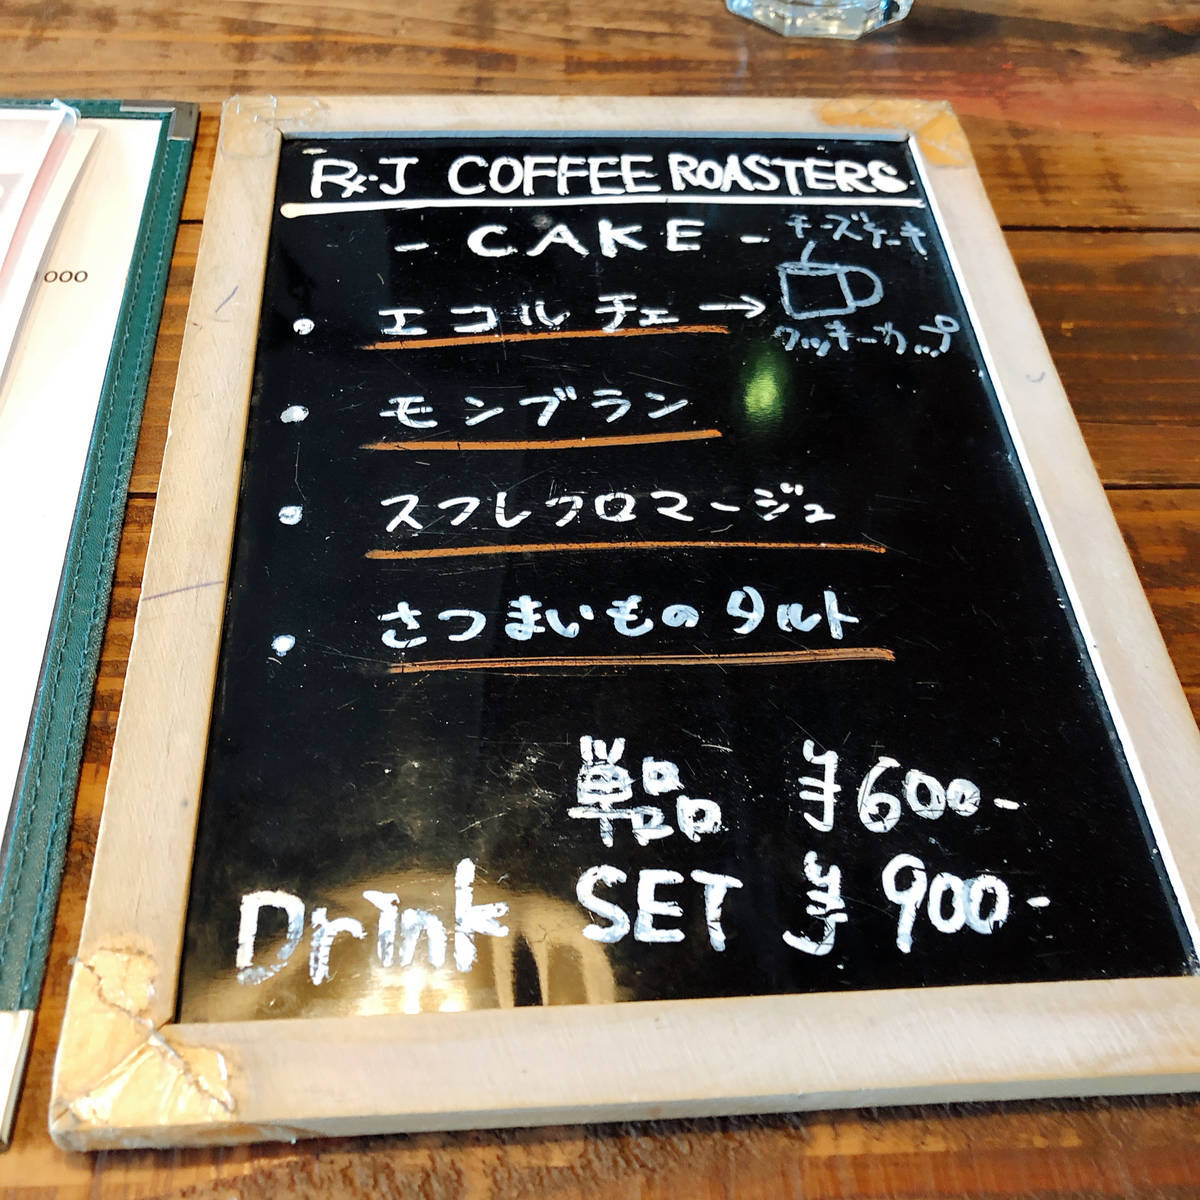 R×J COFFEE ROASTERS
- CAKE -
チーズケーキ
・エコルチェ →
クッキーカップ
・モンブラン
・スフレフロマージュ
・さつまいものタルト
単品 ¥600-
Drink SET ¥900-
000